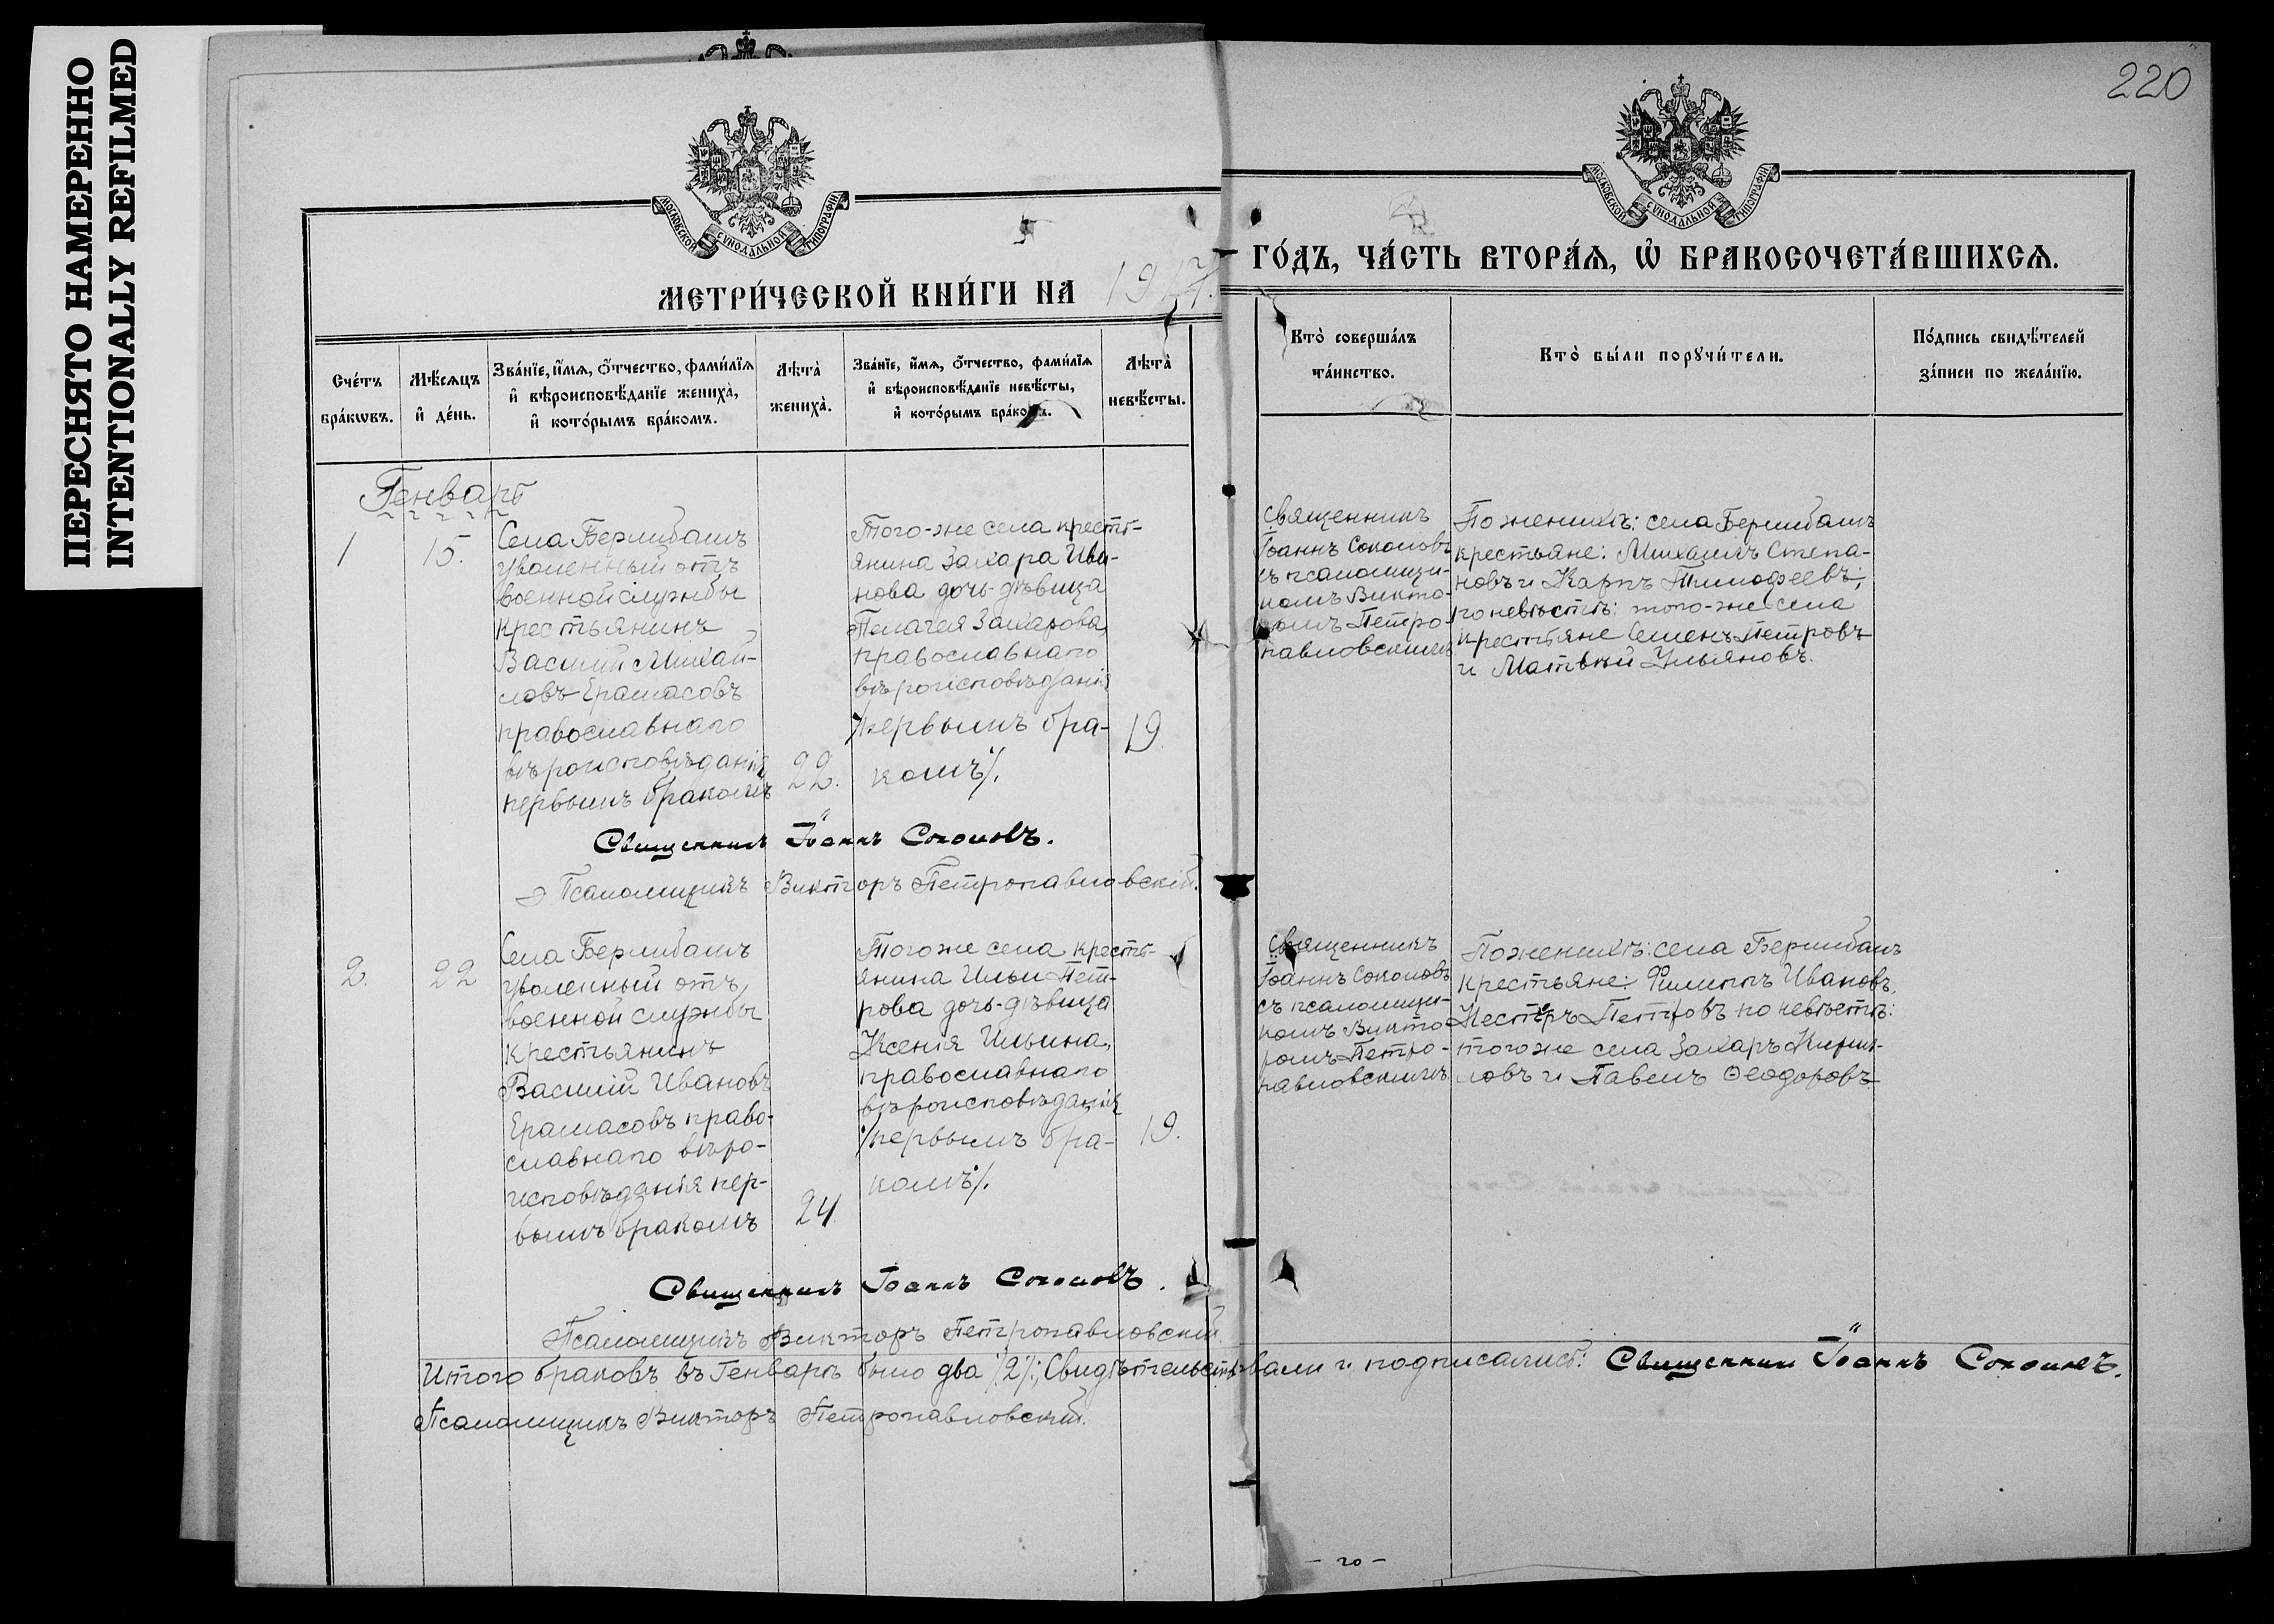 ПЕРЕСНЯТО НАМЕРЕННО
INTENTIONALLY REFILMED
220
МОСКОВСКОЙ СѴНОДАЛЬНОЙ ТИПОГРАФІИ
МОСКОВСКОЙ СѴНОДАЛЬНОЙ ТИПОГРАФІИ
МЕТРИ́ЧЕСКОЙ КНИ́ГИ НА 1917. ГО́ДЪ, ЧА́СТЬ ВТОРА́Ѧ, Ѽ БРАКОСОЧЕТА́ВШИХСѦ.
Сче́тъ
бра́кѡвъ.
Мѣ́сѧцъ
и҆ де́нь.
Зва́нїе, и҆́мѧ, ѻ҆́тчество, фами́лїѧ
и҆ вѣроисповѣ́данїе жениха̀,
и҆ кото́рымъ бра́комъ.
Лѣта̀
жениха̀.
Зва́нїе, и҆́мѧ, ѻ҆́тчество, фами́лїѧ
и҆ вѣроисповѣ́данїе невѣ́сты,
и҆ кото́рымъ бра́комъ.
Лѣта̀
невѣ́сты.
Кто̀ соверша́лъ
та́инство.
Кто̀ бы́ли порꙋчи́тели.
По́дпись свидѣ́телей
за́писи по жела́нїю.
Генварь
1
15.
Села Берлибашъ
уволенный отъ
военной службы
крестьянинъ
Василій Михай-
ловъ Ерамасовъ
православнаго
вѣроисповѣданія
первымъ бракомъ
22.
Того-же села кресть-
янина Захара Ива-
нова дочь-дѣвица
Пелагея Захарова,
православнаго
вѣроисповѣданія
первымъ бра-
комъ.
19.
Священникъ
Іоаннъ Соколовъ
съ псаломщи-
комъ Викто-
ромъ Петро-
павловскимъ
По женихѣ: села Берлибашъ
крестьяне: Михаилъ Степа-
новъ и Карпъ Тимофеевъ;
по невѣстѣ: того-же села
крестьяне Семенъ Петровъ
и Матвѣй Ульяновъ.
Священникъ Іоаннъ Соколовъ.
Псаломщикъ Викторъ Петропавловскій.
2.
22
Села Берлибашъ
уволенный отъ
военной службы
крестьянинъ
Василій Ивановъ
Ерамасовъ право-
славнаго вѣро-
исповѣданія пер-
вымъ бракомъ
24
Того же села кресть-
янина Ильи Пет-
рова дочь-дѣвица
Ксенія Ильина,
православнаго
вѣроисповѣданія
первымъ бра-
комъ.
19.
Священникъ
Іоаннъ Соколовъ
съ псаломщи-
комъ Викто-
ромъ Петро-
павловскимъ
По женихѣ: села Берлибашъ
крестьяне: Филиппъ Ивановъ,
Нестеръ Петровъ по невѣстѣ:
того же села Захаръ Кирил-
ловъ и Павелъ Ѳеодоровъ
Священникъ Іоаннъ Соколовъ.
Псаломщикъ Викторъ Петропавловскій.
Итого браковъ въ Генварѣ было два /2/; Свидѣтельствовали и подписались: Священникъ Іоаннъ Соколовъ.
Псаломщикъ Викторъ Петропавловскій.
- 20 -